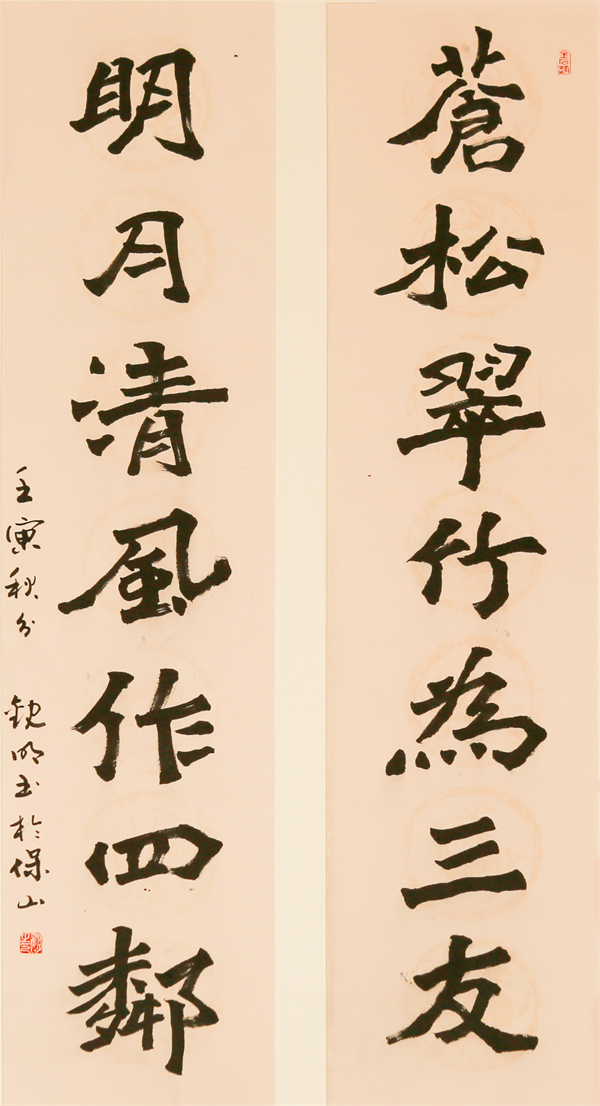 蒼松翠竹為三友
明月清風作四鄰
壬寅秋分 銳明书於保山